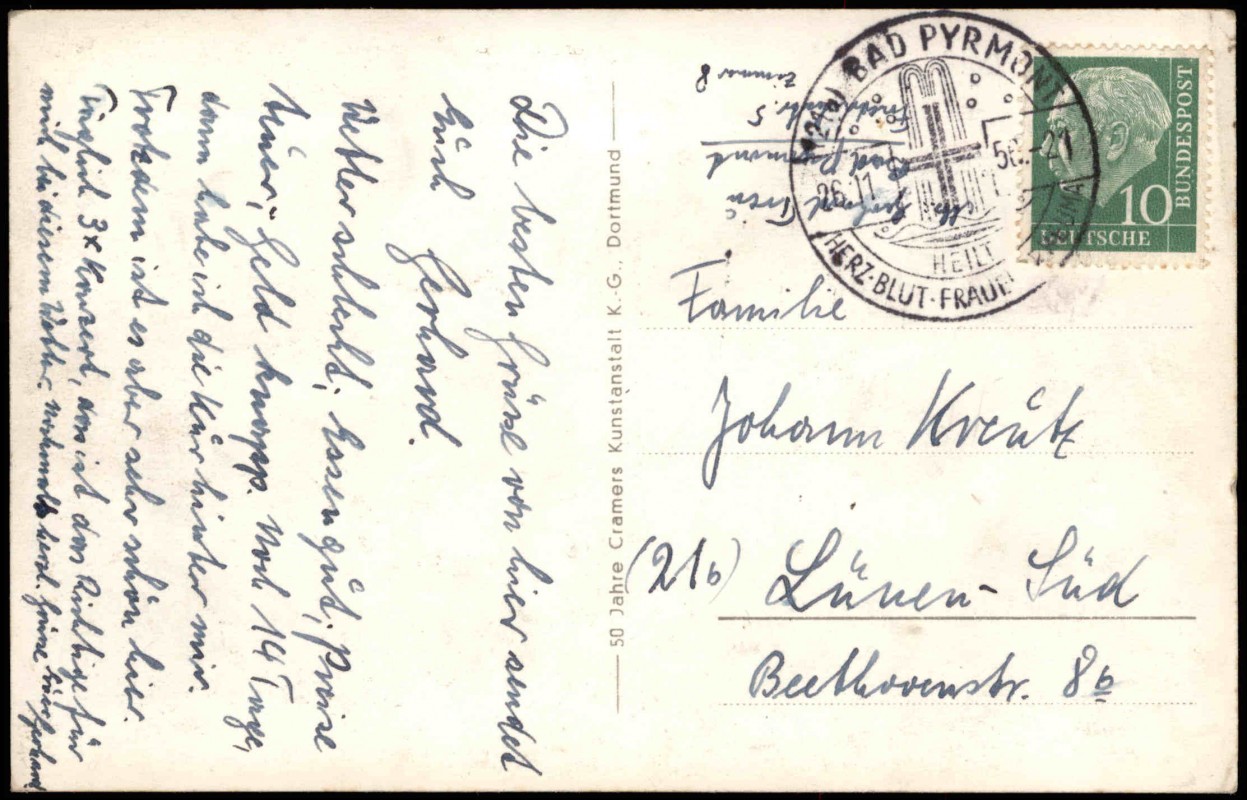 Die besten Grüsse von hier sendet
Euch
Gerhard.
Wetter schlecht, Essen gut, Preise
teuer, Geld knapp. Noch 14 Tage,
dann habe ich die Kur hinter mir.
Trotzdem ist es aber sehr schön hier.
Täglich 3x Konzert, das ist das Richtige für
mich bei diesem Wetter. nochmals herzl. Grüsse Euer Gerhard
50 Jahre Cramers Kunstanstalt K.-G., Dortmund
Bad Pyrmont
Zimmer 8
BAD PYRMONT
26.11.56.-21
HEILT
HERZ·BLUT·FRAUEN
DEUTSCHE
BUNDESPOST
10
Familie
Johann Kreutz
(21b) Lünen-Süd
Beethovenstr. 8b